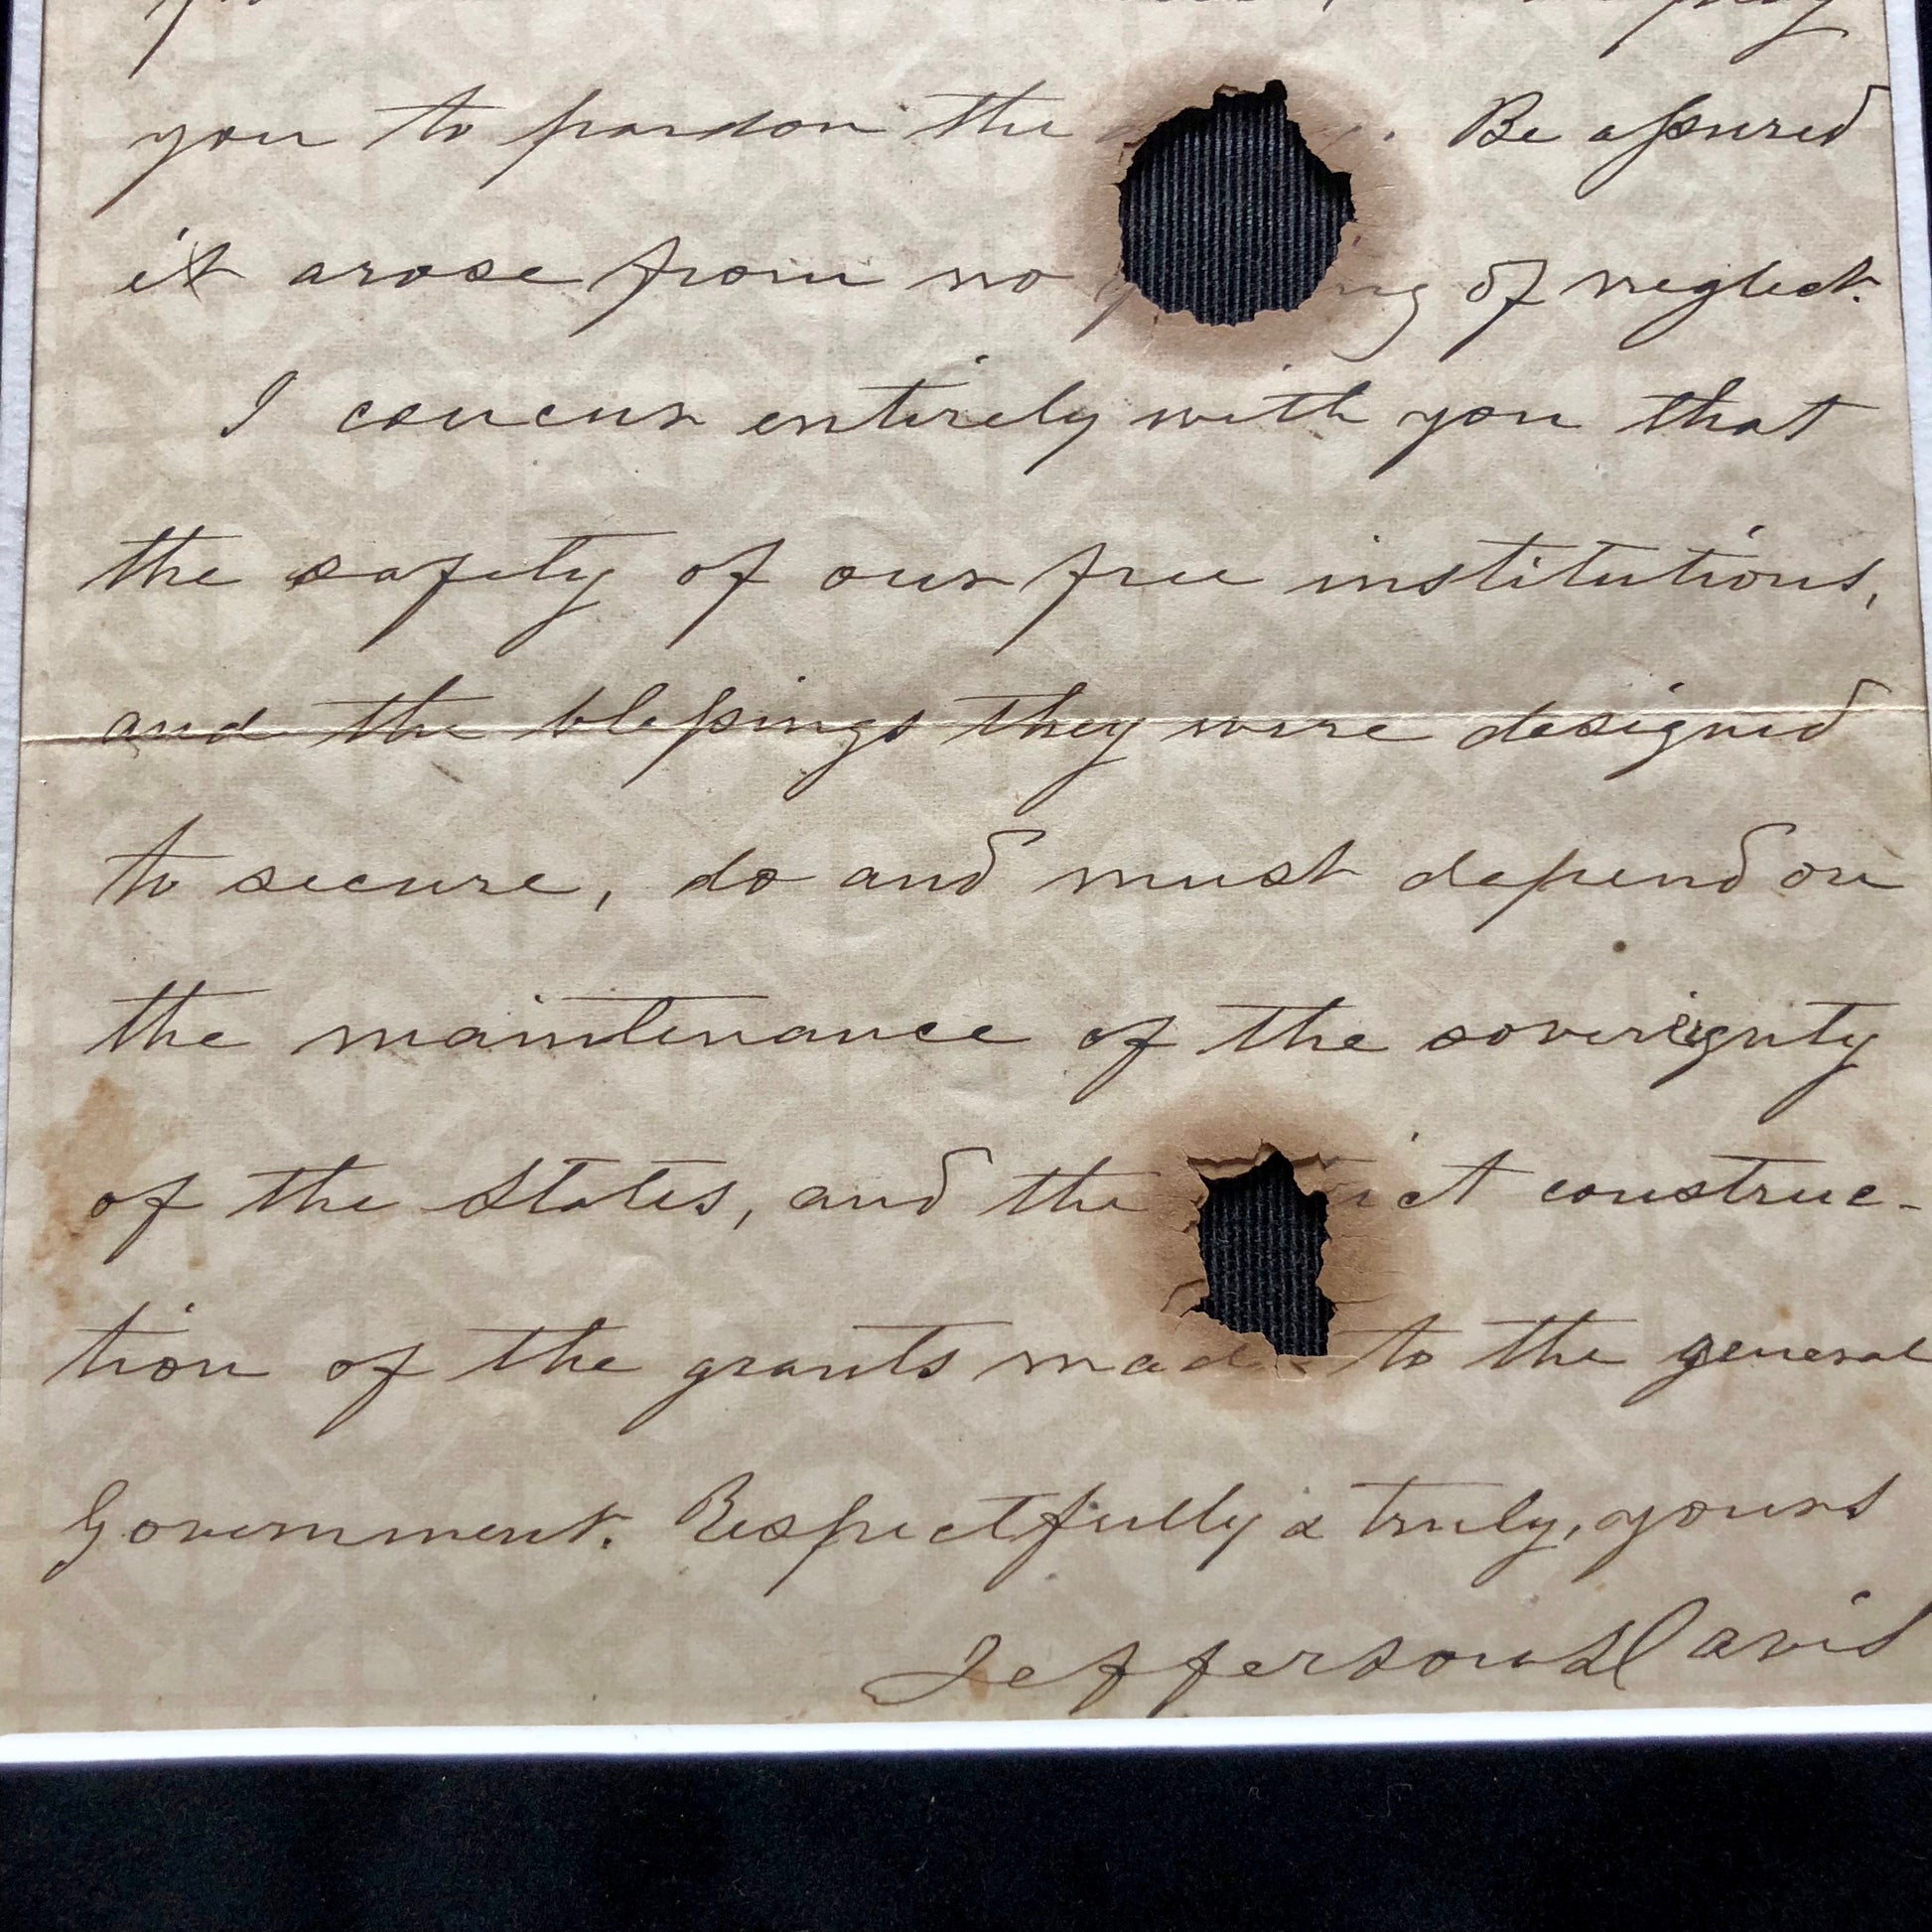 you to pardon the . Be assured
it arose from no of neglect.
I concur entirely with you that
the safety of our free institutions,
and the blessings they were designed
to secure, do and must depend on
the maintenance of the sovereignty
of the States, and the construc-
tion of the grants made to the general
Government. Respectfully & truly, yours
Jefferson Davis